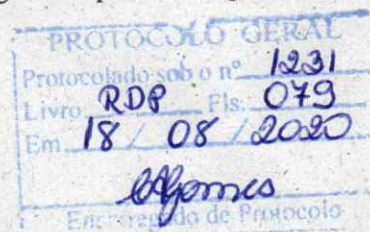 PROTOCOLO GERAL
Protocolado sob o nº 1231
Livro RDP Fls. 079
Em 18 / 08 / 2020
Encarregado de Protocolo